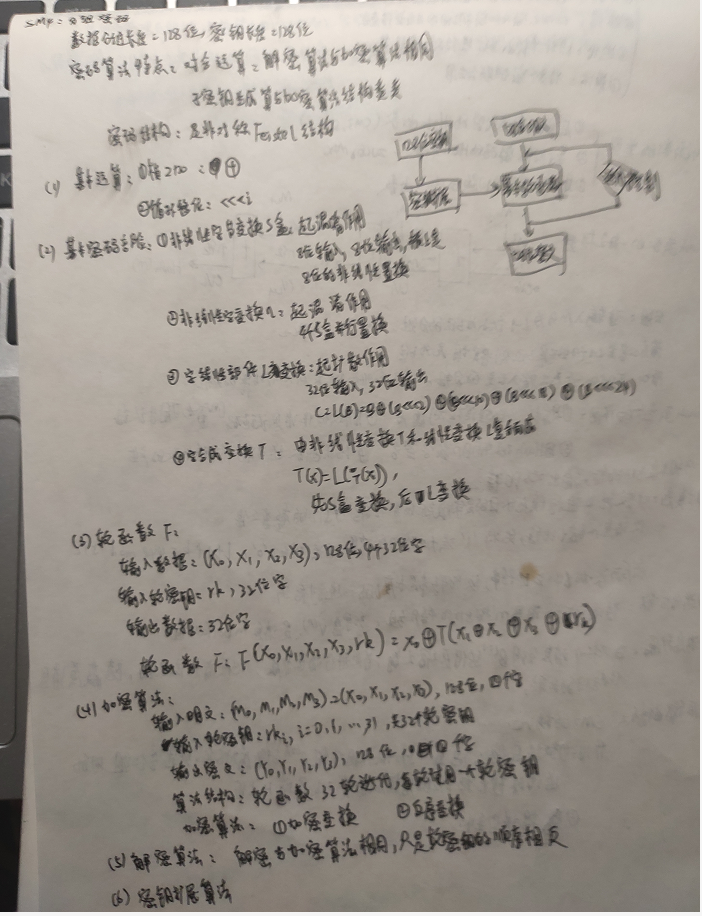 SM4：分组密码
数据分组长度=128位，密钥长度=128位
密码算法特点：对合运算：解密算法与加密算法相同
子密钥生成算法与加密算法结构类似
密码结构：是非对称Feistel结构
(1) 基本运算：①模2加：⊕
②循环移位：<<<i
(2) 基本密码部件：①非线性字节变换S盒：起混淆作用
8位输入，8位输出，
8位的非线性置换
②非线性字变换τ：起混淆作用
4个S盒并行置换
③字线性部件L变换：起扩散作用
32位输入，32位输出
C=L(B)=B⊕(B<<<2)⊕(B<<<10)⊕(B<<<18)⊕(B<<<24)
④字合成变换T：由非线性变换τ和线性变换L复合而成
T(X)=L(τ(X))，
先S盒变换，后L变换
(3) 轮函数F：
输入数据：(X₀,X₁,X₂,X₃)，128位，4个32位字
输入轮密钥：rk，32位字
输出数据：32位字
轮函数F：F(X₀,X₁,X₂,X₃,rk)=X₀⊕T(X₁⊕X₂⊕X₃⊕rk)
(4) 加密算法：
输入明文：(M₀,M₁,M₂,M₃)=(X₀,X₁,X₂,X₃)，128位，四个字
输入轮密钥：rkᵢ，i=0,1,…,31，共32个轮密钥
输出密文：(Y₀,Y₁,Y₂,Y₃)，128位，四个字
算法结构：轮函数32轮迭代，每轮使用一个轮密钥
加密算法：①加密变换 ②反序变换
(5) 解密算法：解密与加密算法相同，只是轮密钥的顺序相反
(6) 密钥扩展算法